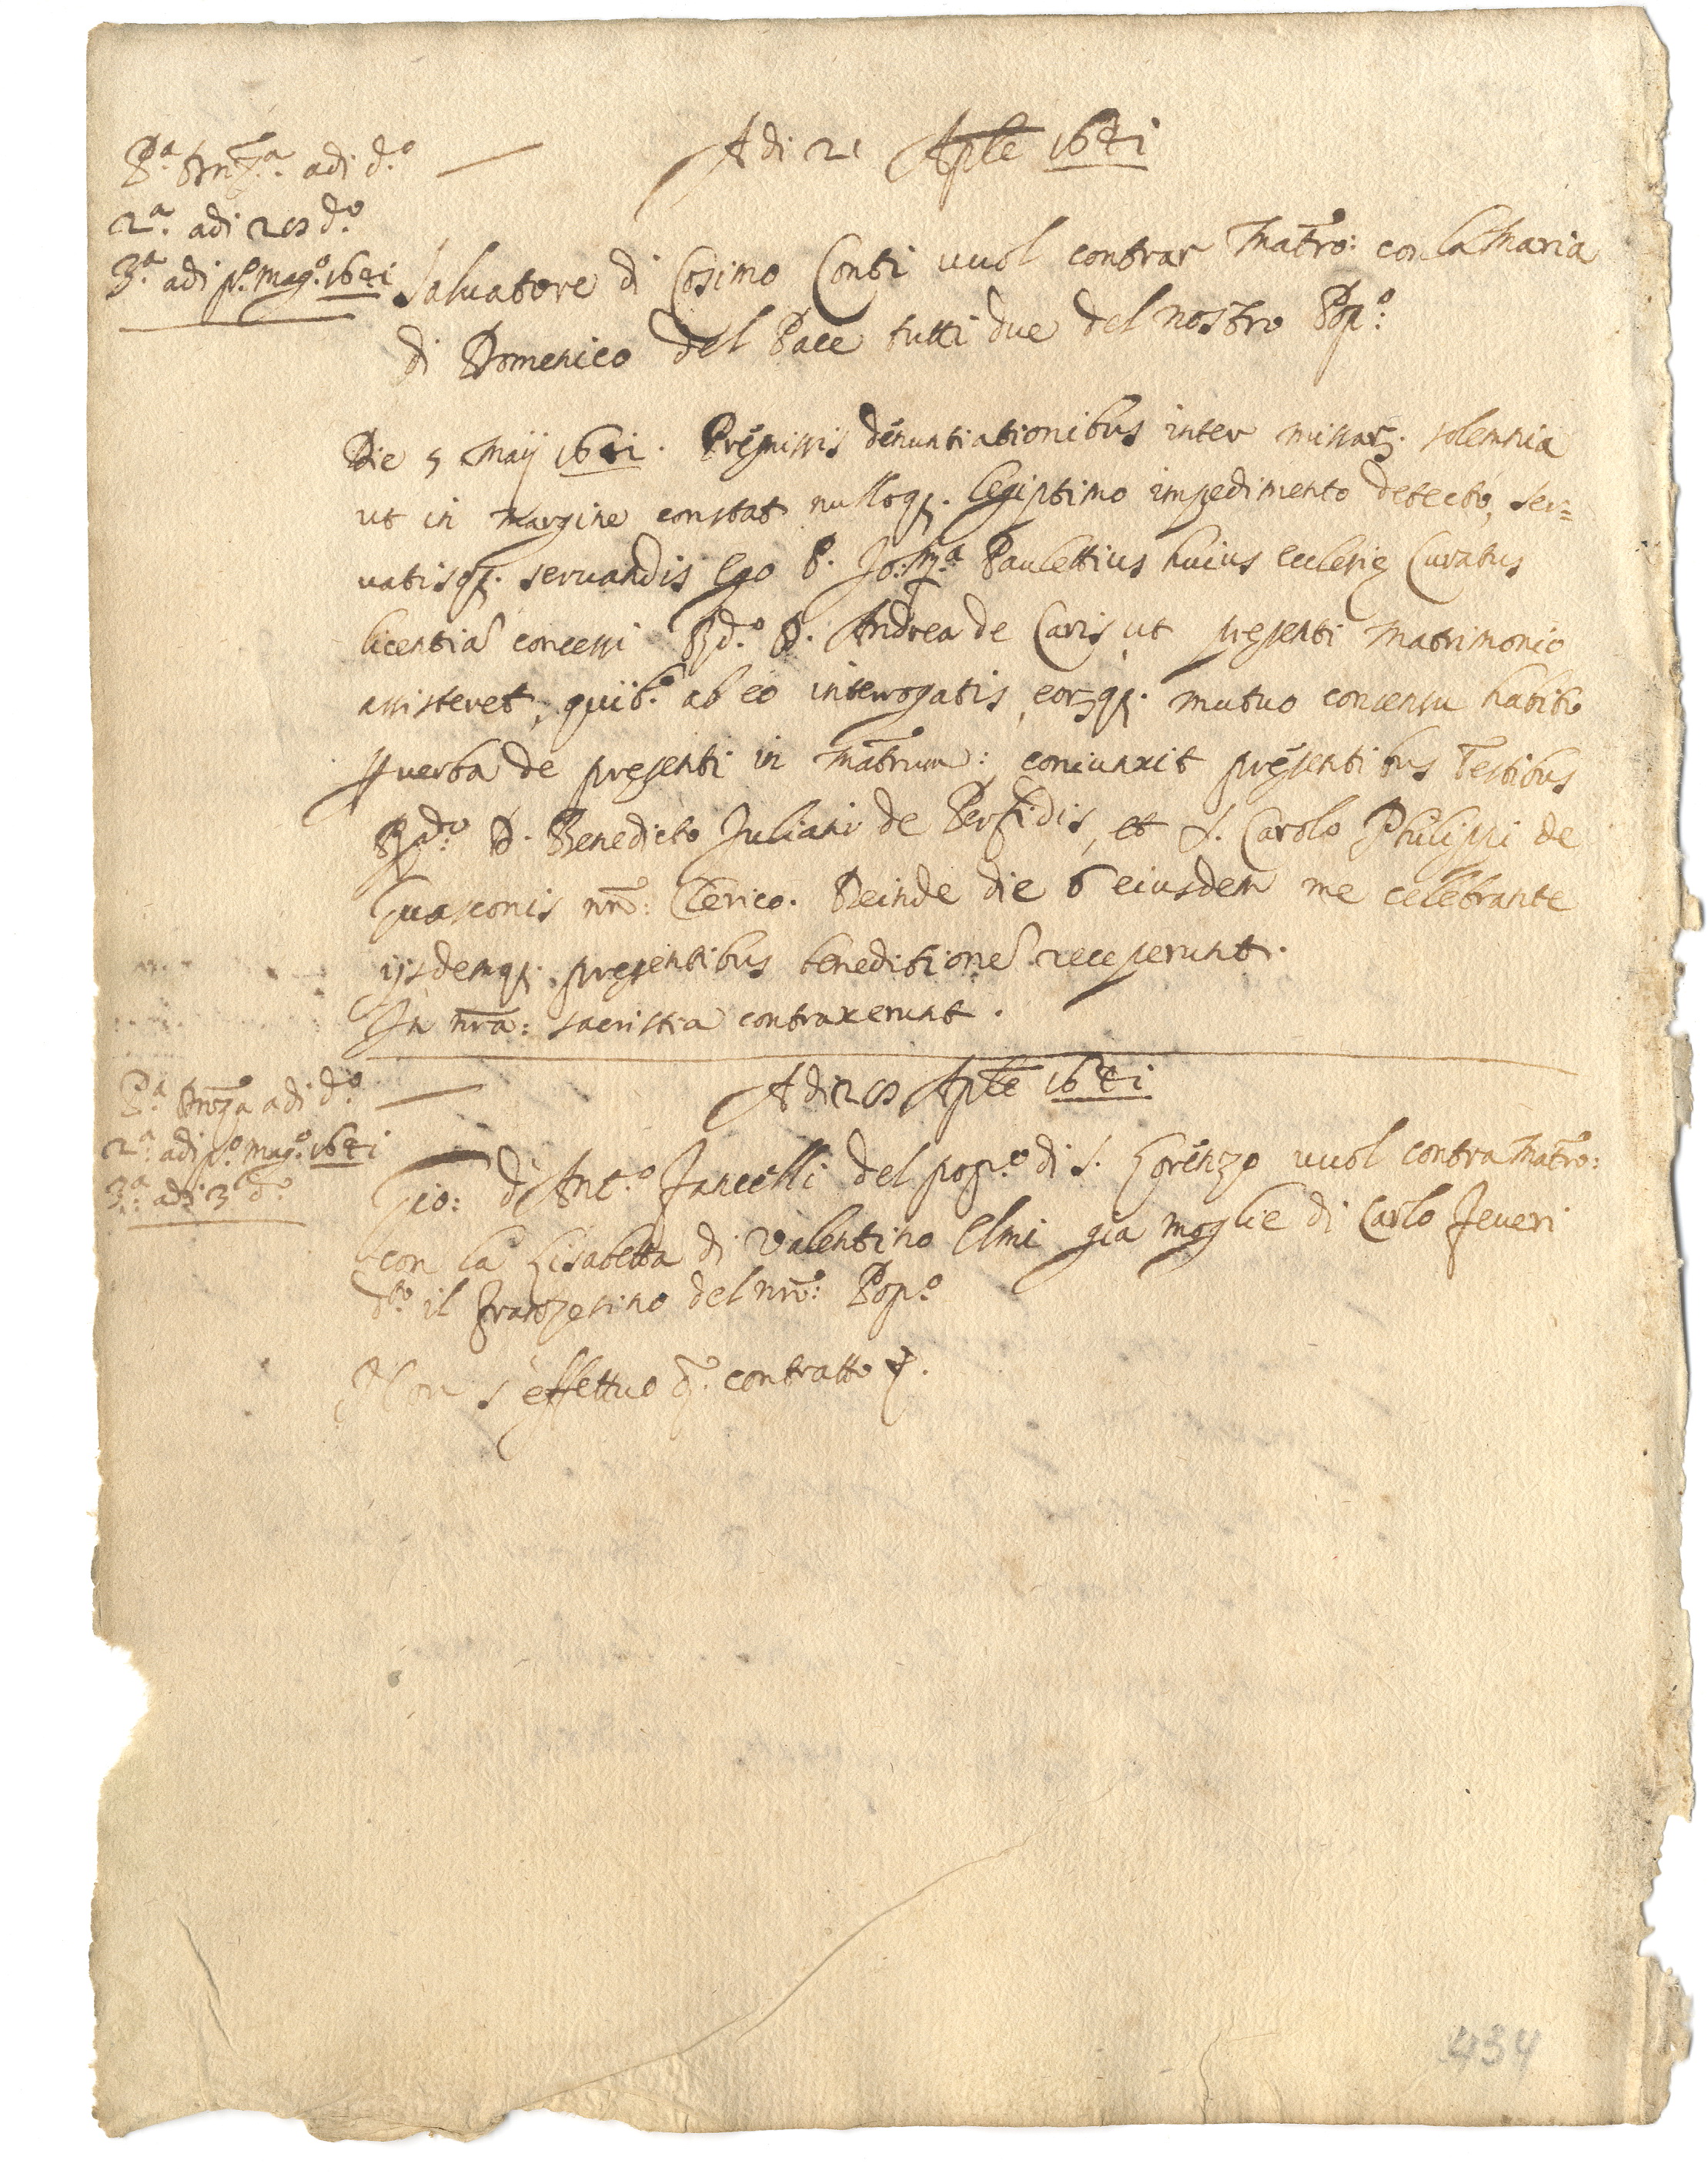 Adi 21 Aple 1641
Pa Dnza adi do
2a adi 28 do
3a adi po Mago 1641
Salvatore di Cosimo Conti vuol contrar Matro: con la Maria
di Domenico del Pace tutti due del nostro Popo:
Die 5 Maij 1641. Premissis denuntiationibus inter missarum solemnia
ut in margine constat nulloq. legiptimo impedimento detecto, ser=
vatisq. servandis Ego P. Jo: Paulettius huius ecclesie Curatus
licentia concessi Rdo D. Andrea de Caris, ut presenti Matrimonio
assisteret, quibo ab eo interrogatis, eorumq. mutuo consensu habito
p verba de presenti in Matrum: coniunxit presentibus Testibus
Rdo D. Benedicto Juliani de Perfidis, et S. Carolo Philippi de
Guasconis nro: Clerico. Deinde die 6 eiusdem me celebrante
ijsdemq. presentibus beneditione receperunt.
In nra: sacristia contraxerunt.
Adi 28 Aple 1641
Pa Dnza adi do
2a adi po Mago 1641
3a adi 3 do
Gio: di Anto Jancelli del popo di S. Lorenzo vuol contra Matro:
con la Lisabetta di Valentino Elmi gia moglie di Carlo
do il Franzesino del nro: Popo
Non s'effettuo qo contratto
434